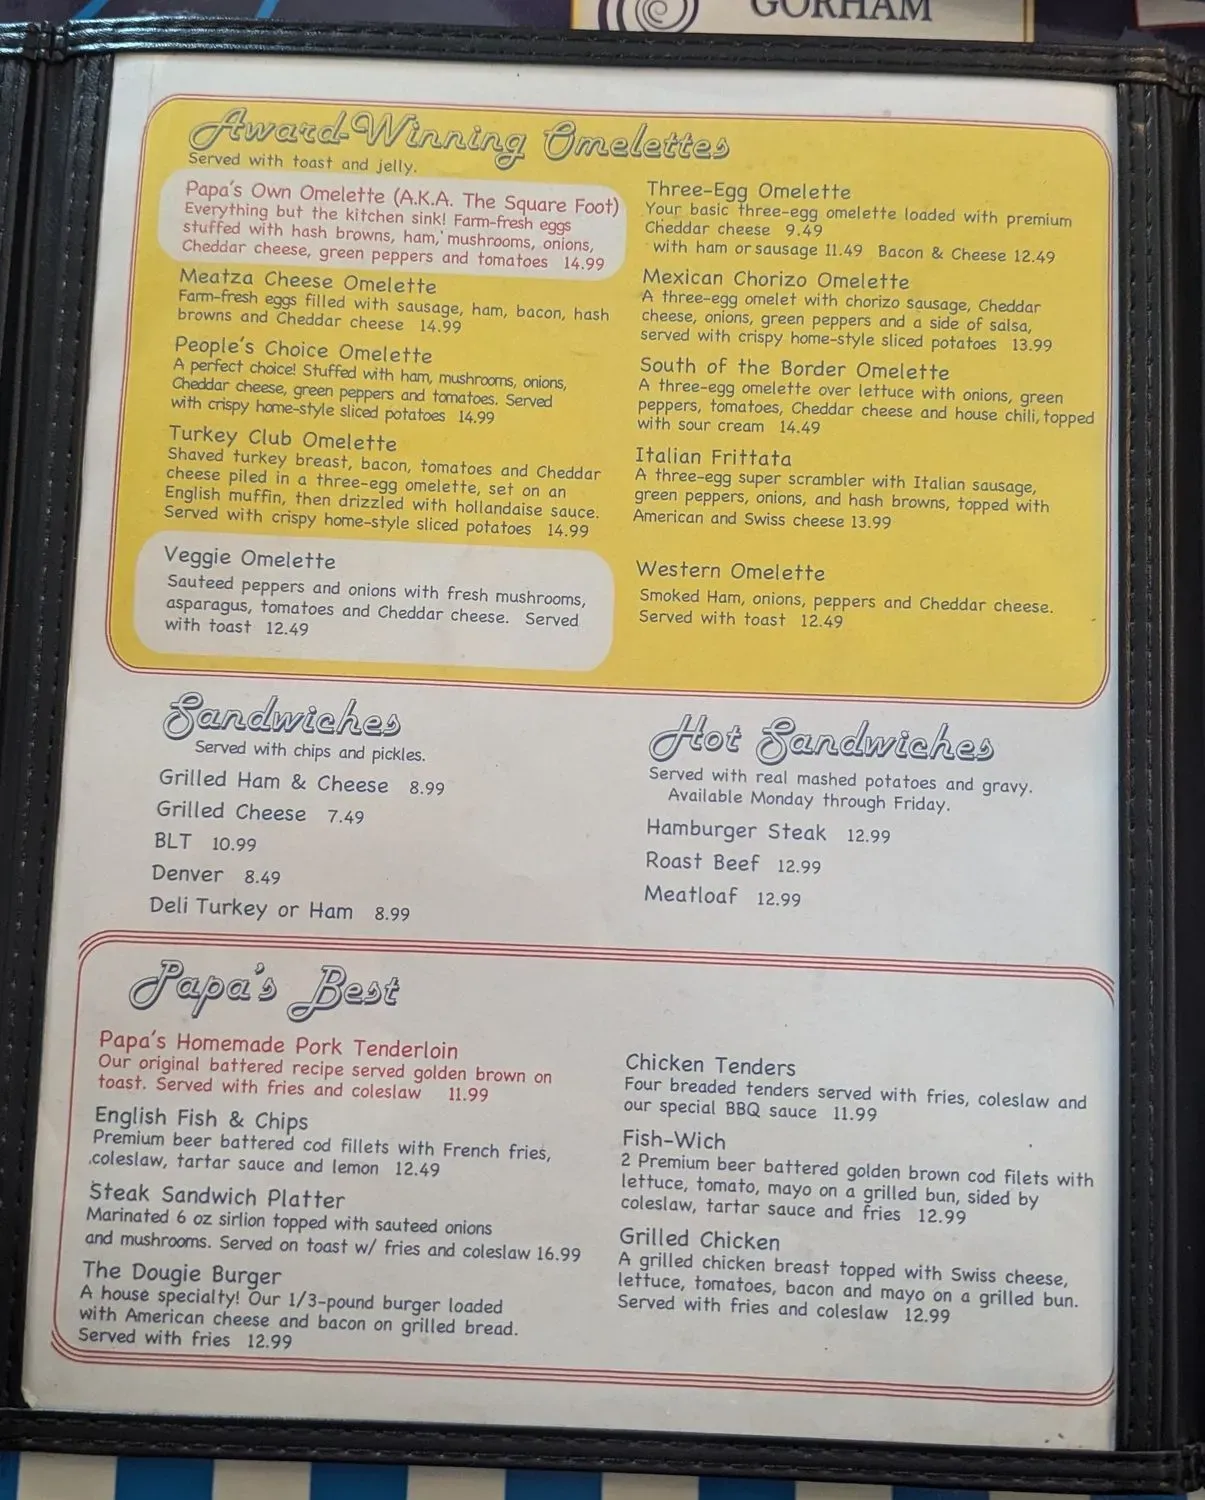 GORHAM
Award-Winning Omelettes
Served with toast and jelly.
Papa's Own Omelette (A.K.A. The Square Foot)
Everything but the kitchen sink! Farm-fresh eggs
stuffed with hash browns, ham, mushrooms, onions,
Cheddar cheese, green peppers and tomatoes 14.99
Meatza Cheese Omelette
Farm-fresh eggs filled with sausage, ham, bacon, hash
browns and Cheddar cheese 14.99
People's Choice Omelette
A perfect choice! Stuffed with ham, mushrooms, onions,
Cheddar cheese, green peppers and tomatoes. Served
with crispy home-style sliced potatoes 14.99
Turkey Club Omelette
Shaved turkey breast, bacon, tomatoes and Cheddar
cheese piled in a three-egg omelette, set on an
English muffin, then drizzled with hollandaise sauce.
Served with crispy home-style sliced potatoes 14.99
Veggie Omelette
Sauteed peppers and onions with fresh mushrooms,
asparagus, tomatoes and Cheddar cheese. Served
with toast 12.49
Three-Egg Omelette
Your basic three-egg omelette loaded with premium
Cheddar cheese 9.49
with ham or sausage 11.49 Bacon & Cheese 12.49
Mexican Chorizo Omelette
A three-egg omelet with chorizo sausage, Cheddar
cheese, onions, green peppers and a side of salsa,
served with crispy home-style sliced potatoes 13.99
South of the Border Omelette
A three-egg omelette over lettuce with onions, green
peppers, tomatoes, Cheddar cheese and house chili, topped
with sour cream 14.49
Italian Frittata
A three-egg super scrambler with Italian sausage,
green peppers, onions, and hash browns, topped with
American and Swiss cheese 13.99
Western Omelette
Smoked Ham, onions, peppers and Cheddar cheese.
Served with toast 12.49
Sandwiches
Served with chips and pickles.
Grilled Ham & Cheese 8.99
Grilled Cheese 7.49
BLT 10.99
Denver 8.49
Deli Turkey or Ham 8.99
Hot Sandwiches
Served with real mashed potatoes and gravy.
Available Monday through Friday.
Hamburger Steak 12.99
Roast Beef 12.99
Meatloaf 12.99
Papa's Best
Papa's Homemade Pork Tenderloin
Our original battered recipe served golden brown on
toast. Served with fries and coleslaw 11.99
English Fish & Chips
Premium beer battered cod fillets with French fries,
coleslaw, tartar sauce and lemon 12.49
Steak Sandwich Platter
Marinated 6 oz sirlion topped with sauteed onions
and mushrooms. Served on toast w/ fries and coleslaw 16.99
The Dougie Burger
A house specialty! Our 1/3-pound burger loaded
with American cheese and bacon on grilled bread.
Served with fries 12.99
Chicken Tenders
Four breaded tenders served with fries, coleslaw and
our special BBQ sauce 11.99
Fish-Wich
2 Premium beer battered golden brown cod filets with
lettuce, tomato, mayo on a grilled bun, sided by
coleslaw, tartar sauce and fries 12.99
Grilled Chicken
A grilled chicken breast topped with Swiss cheese,
lettuce, tomatoes, bacon and mayo on a grilled bun.
Served with fries and coleslaw 12.99